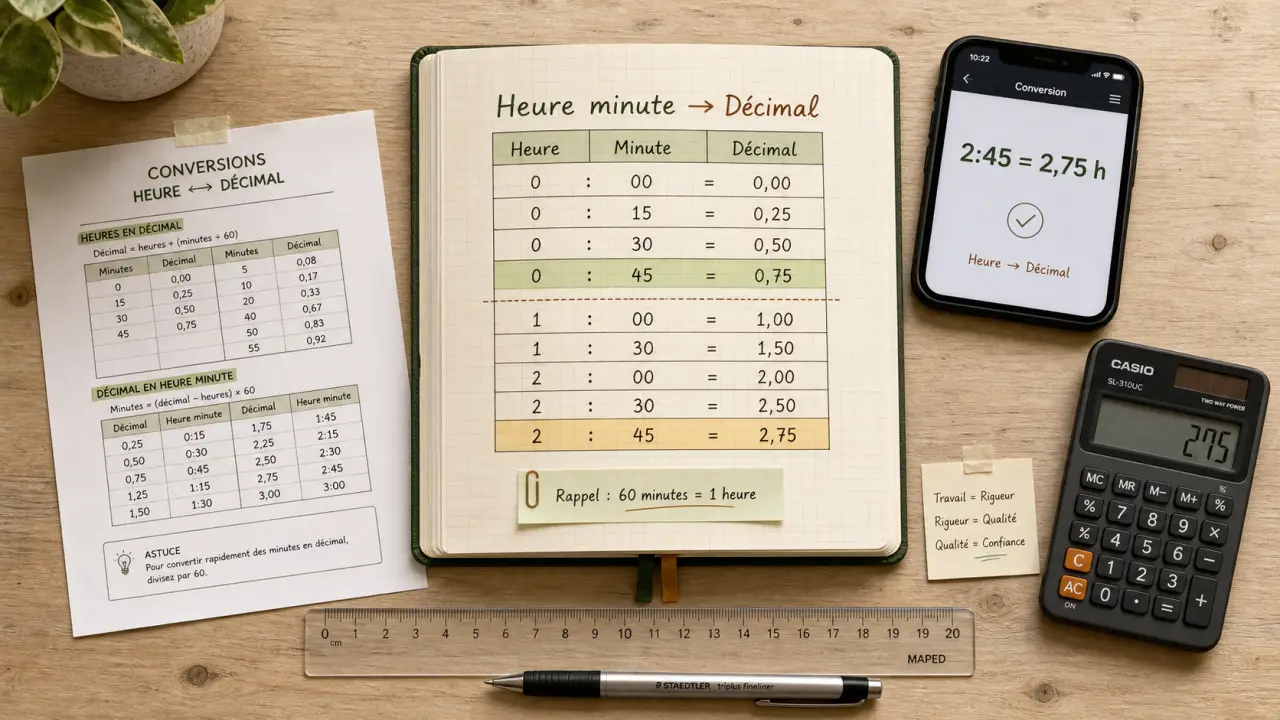 CONVERSIONS
HEURE ↔ DÉCIMAL
HEURES EN DÉCIMAL
Décimal = heures + (minutes ÷ 60)
Minutes Décimal Minutes Décimal
0 0,00 5 0,08
15 0,25 10 0,17
30 0,50 20 0,33
45 0,75 40 0,67
50 0,83
55 0,92
DÉCIMAL EN HEURE MINUTE
Minutes = (décimal – heures) × 60
Décimal Heure minute Décimal Heure minute
0,25 0:15 1,75 1:45
0,50 0:30 2,25 2:15
0,75 0:45 2,50 2:30
1,25 1:15 2,75 2:45
1,50 1:30 3,00 3:00
ASTUCE
Pour convertir rapidement des minutes en décimal,
divisez par 60.
Heure minute → Décimal
Heure Minute Décimal
0 : 00 = 0,00
0 : 15 = 0,25
0 : 30 = 0,50
0 : 45 = 0,75
1 : 00 = 1,00
1 : 30 = 1,50
2 : 00 = 2,00
2 : 30 = 2,50
2 : 45 = 2,75
Rappel : 60 minutes = 1 heure
10:22
Conversion
2:45 = 2,75 h
Heure → Décimal
CASIO
SL-310UC
TWO WAY POWER
275
%
MC MR M– M+ %
% 7 8 9 ×
% 4 5 6 –
C 1 2 3 +
AC 0 · =
ON
Travail = Rigueur
Rigueur = Qualité
Qualité = Confiance
0 1 2 3 4 5 6 7 8 9 10 11 12 13 14 15 16 17 18 19 20
cm
MAPED
STAEDTLER triplus fineliner